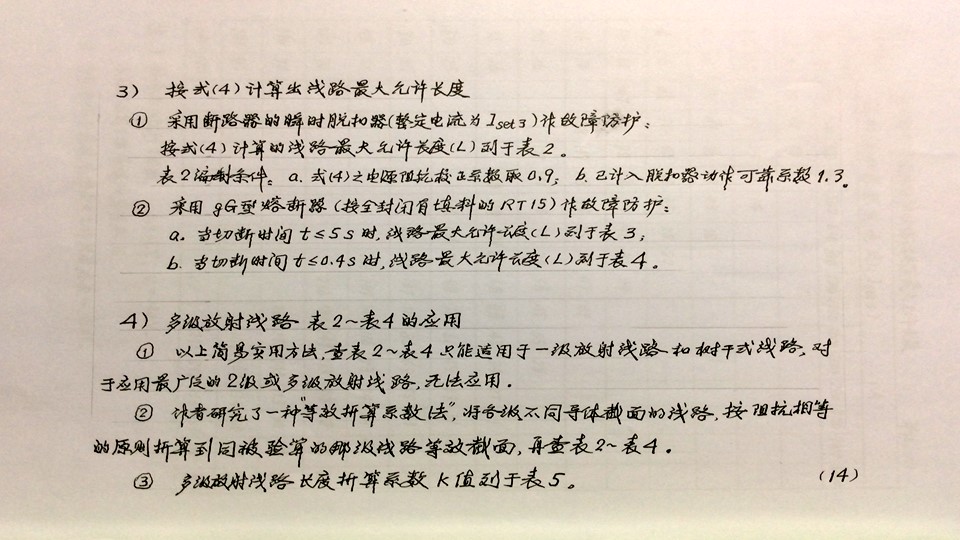 3) 按式(4)计算出线路最大允许长度
① 采用断路器的瞬时脱扣器(整定电流为Iset3)作故障防护:
按式(4)计算的线路最大允许长度(L)列于表2。
表2编制条件: a. 式(4)之电源阻抗校正系数取0.9; b. 已计入脱扣器动作可靠系数1.3。
② 采用gG型熔断器(按全封闭有填料的RT15)作故障防护:
a. 当切断时间t≤5s时,线路最大允许长度(L)列于表3;
b. 当切断时间t≤0.4s时,线路最大允许长度(L)列于表4。
4) 多级放射线路 表2~表4的应用
① 以上简易实用方法,查表2~表4只能适用于一级放射线路和树干式线路,对
于应用最广泛的2级或多级放射线路,无法应用。
② 作者研究了一种"等效折算系数法",将各级不同导体截面的线路,按阻抗相等
的原则折算到同被验算的那级线路等效截面,再查表2~表4。
③ 多级放射线路长度折算系数K值列于表5。
(14)